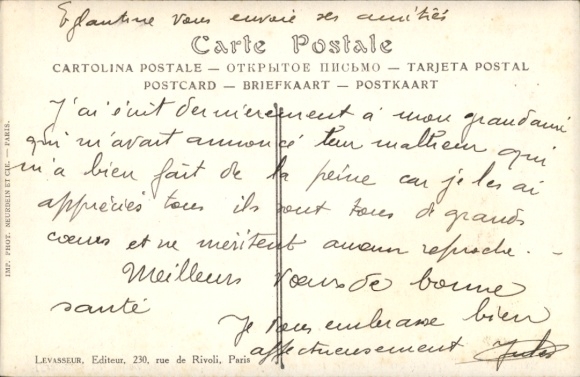 Eglantine vous envoie ses amitiés
Carte Postale
CARTOLINA POSTALE — ОТКРЫТОЕ ПИСЬМО — TARJETA POSTAL
POSTCARD — BRIEFKAART — POSTKAART
J'ai écrit dernièrement à mon grand ami
qui m'avait annoncé leur malheur qui
m'a bien fait de la peine car je les ai
appréciés tous ils sont tous de grands
cœurs et ne méritent aucun reproche. -
Meilleurs vœux de bonne
santé
Je vous embrasse bien
affectueusement Jules
LEVASSEUR, Editeur, 230, rue de Rivoli, Paris
IMP. PHOT. NEURDEIN ET CIE. — PARIS.